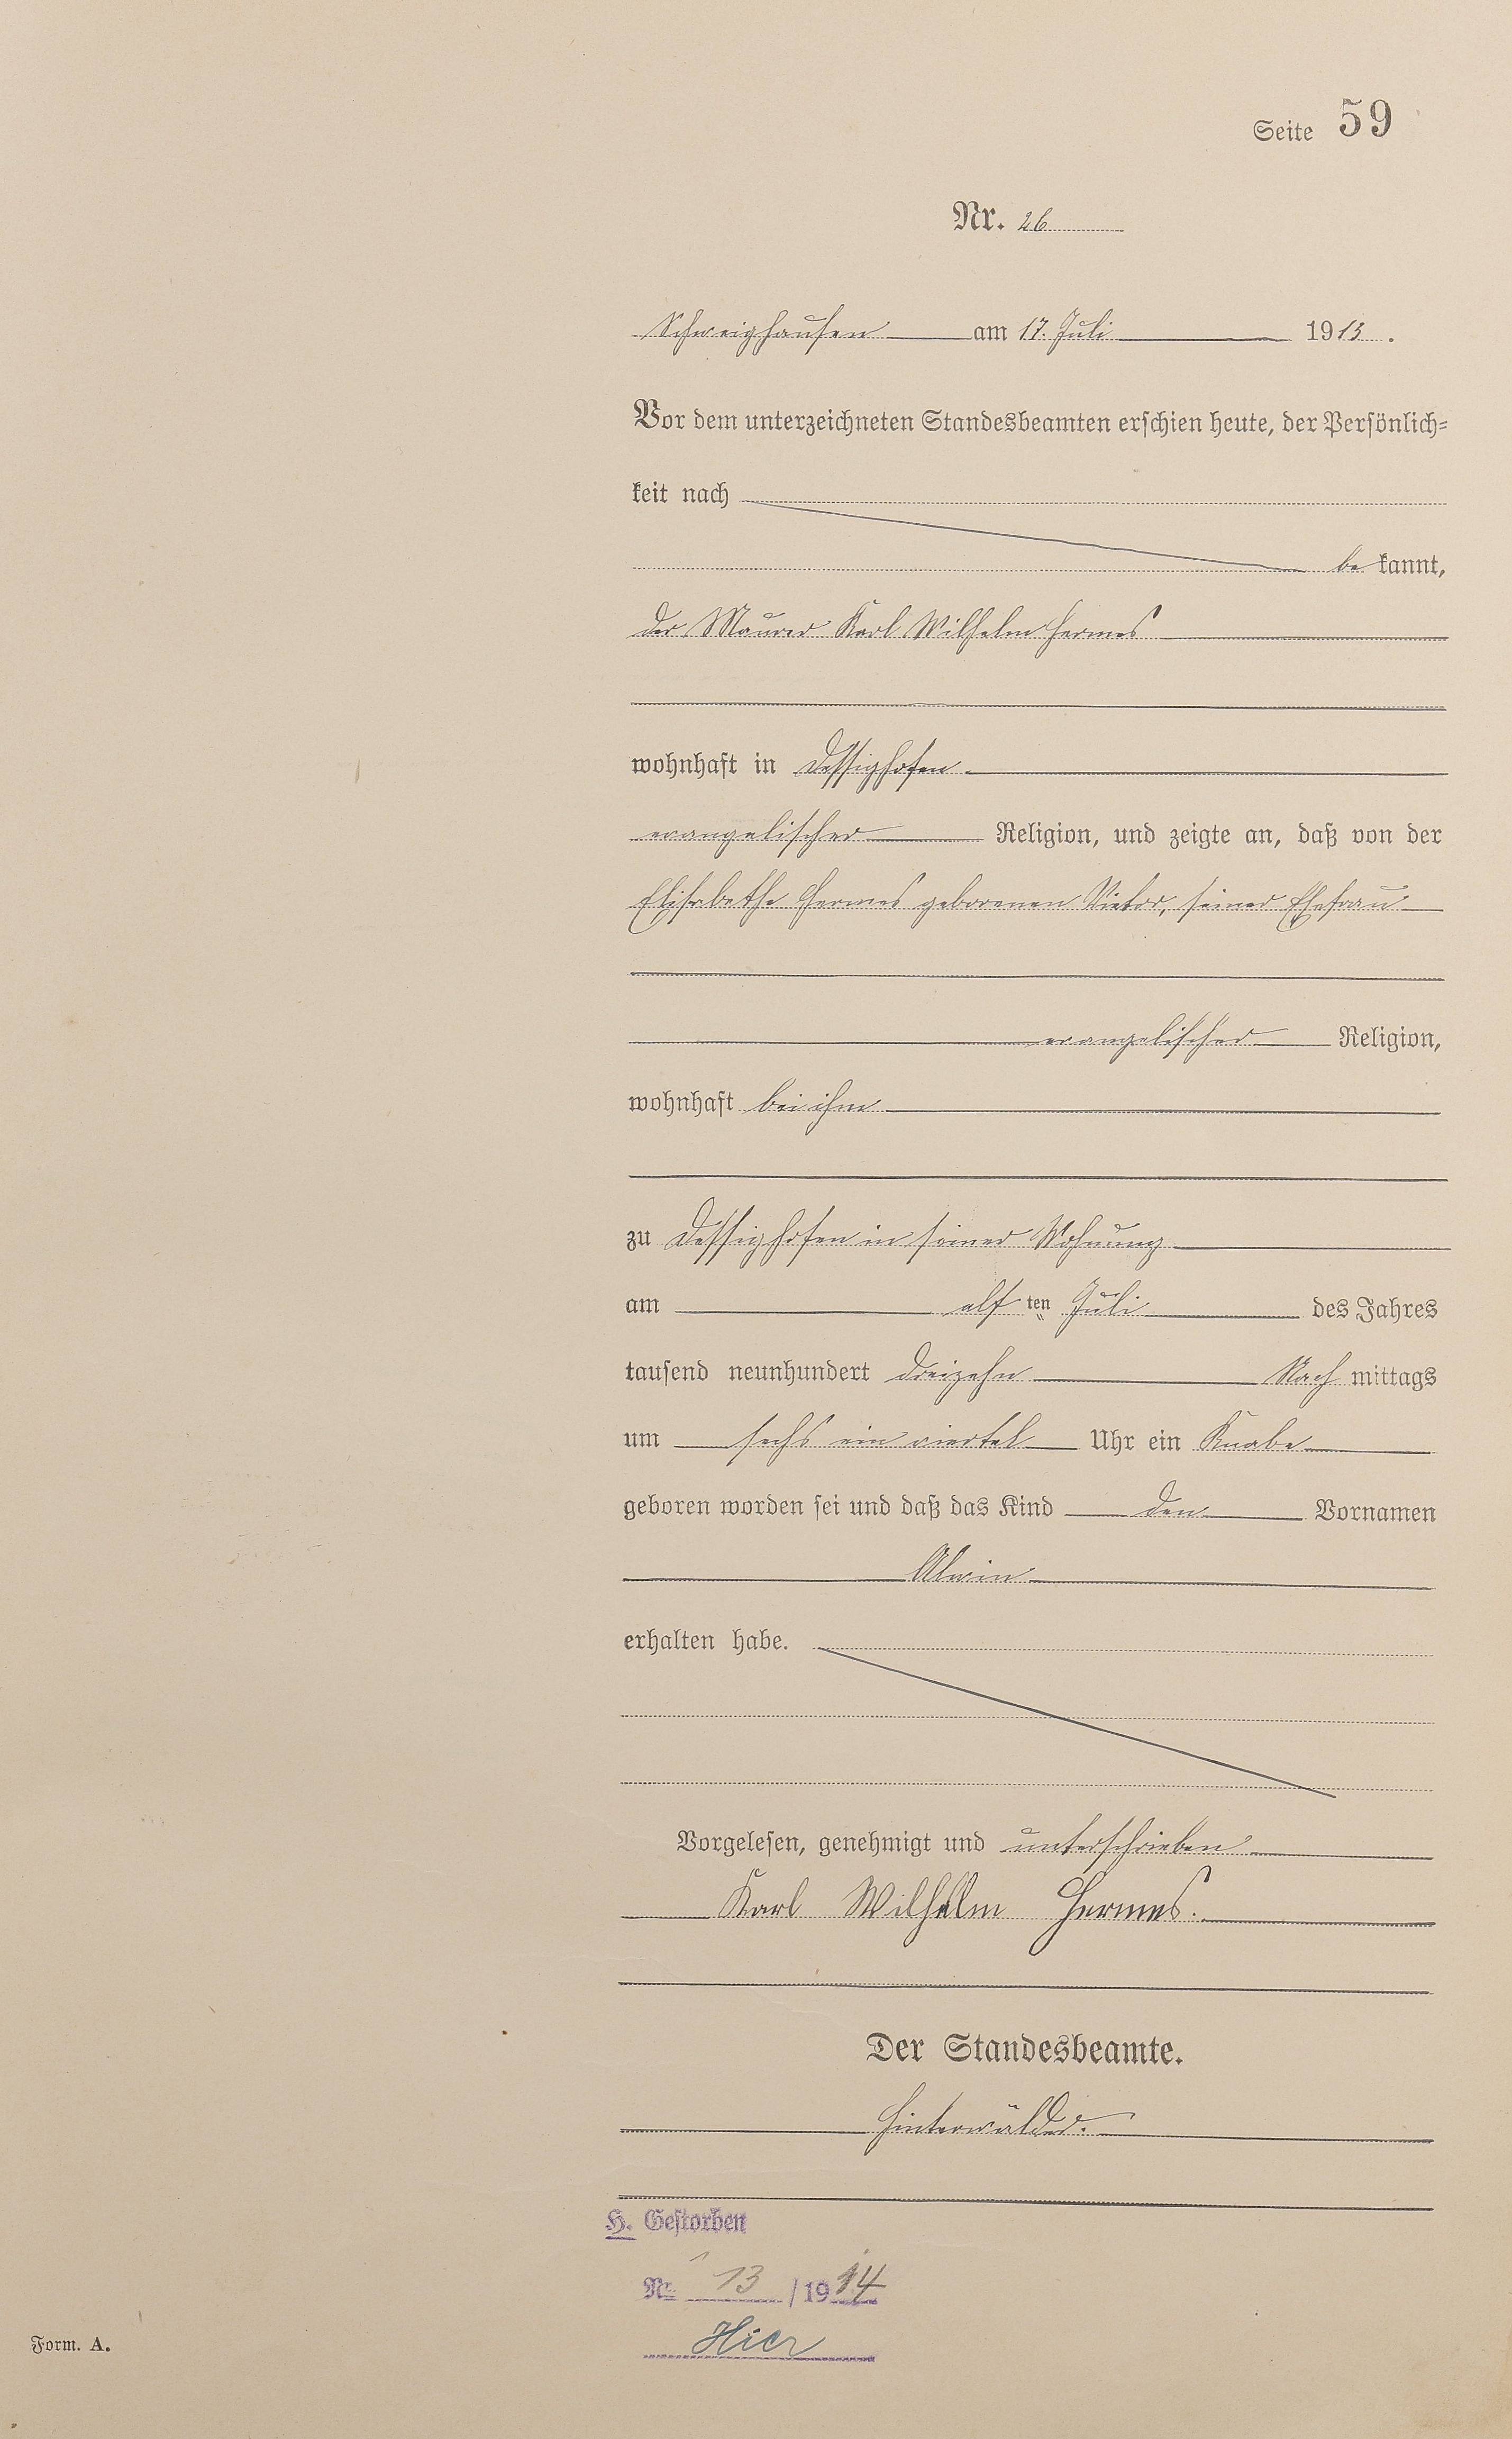 Seite 59
Nr. 26
Schweighausen am 17. Juli 1913.
Vor dem unterzeichneten Standesbeamten erschien heute, der Persönlich-
keit nach
be kannt,
der Maurer Karl Wilhelm Hermes
wohnhaft in Dessighofen
evangelischer Religion, und zeigte an, daß von der
Elisabethe Hermes geborenen Vietor, seiner Ehefrau
evangelischer Religion,
wohnhaft bei ihm
zu Dessighofen in seiner Wohnung
am elf ten Juli des Jahres
tausend neunhundert dreizehn Nach mittags
um sechs ein viertel Uhr ein Knabe
geboren worden sei und daß das Kind den Vornamen
Alwin
erhalten habe.
Vorgelesen, genehmigt und unterschrieben
Karl Wilhelm Hermes.
Der Standesbeamte.
Hinterwälder.
H. Gestorben
Nr. 13 /1914
Hier
Form. A.